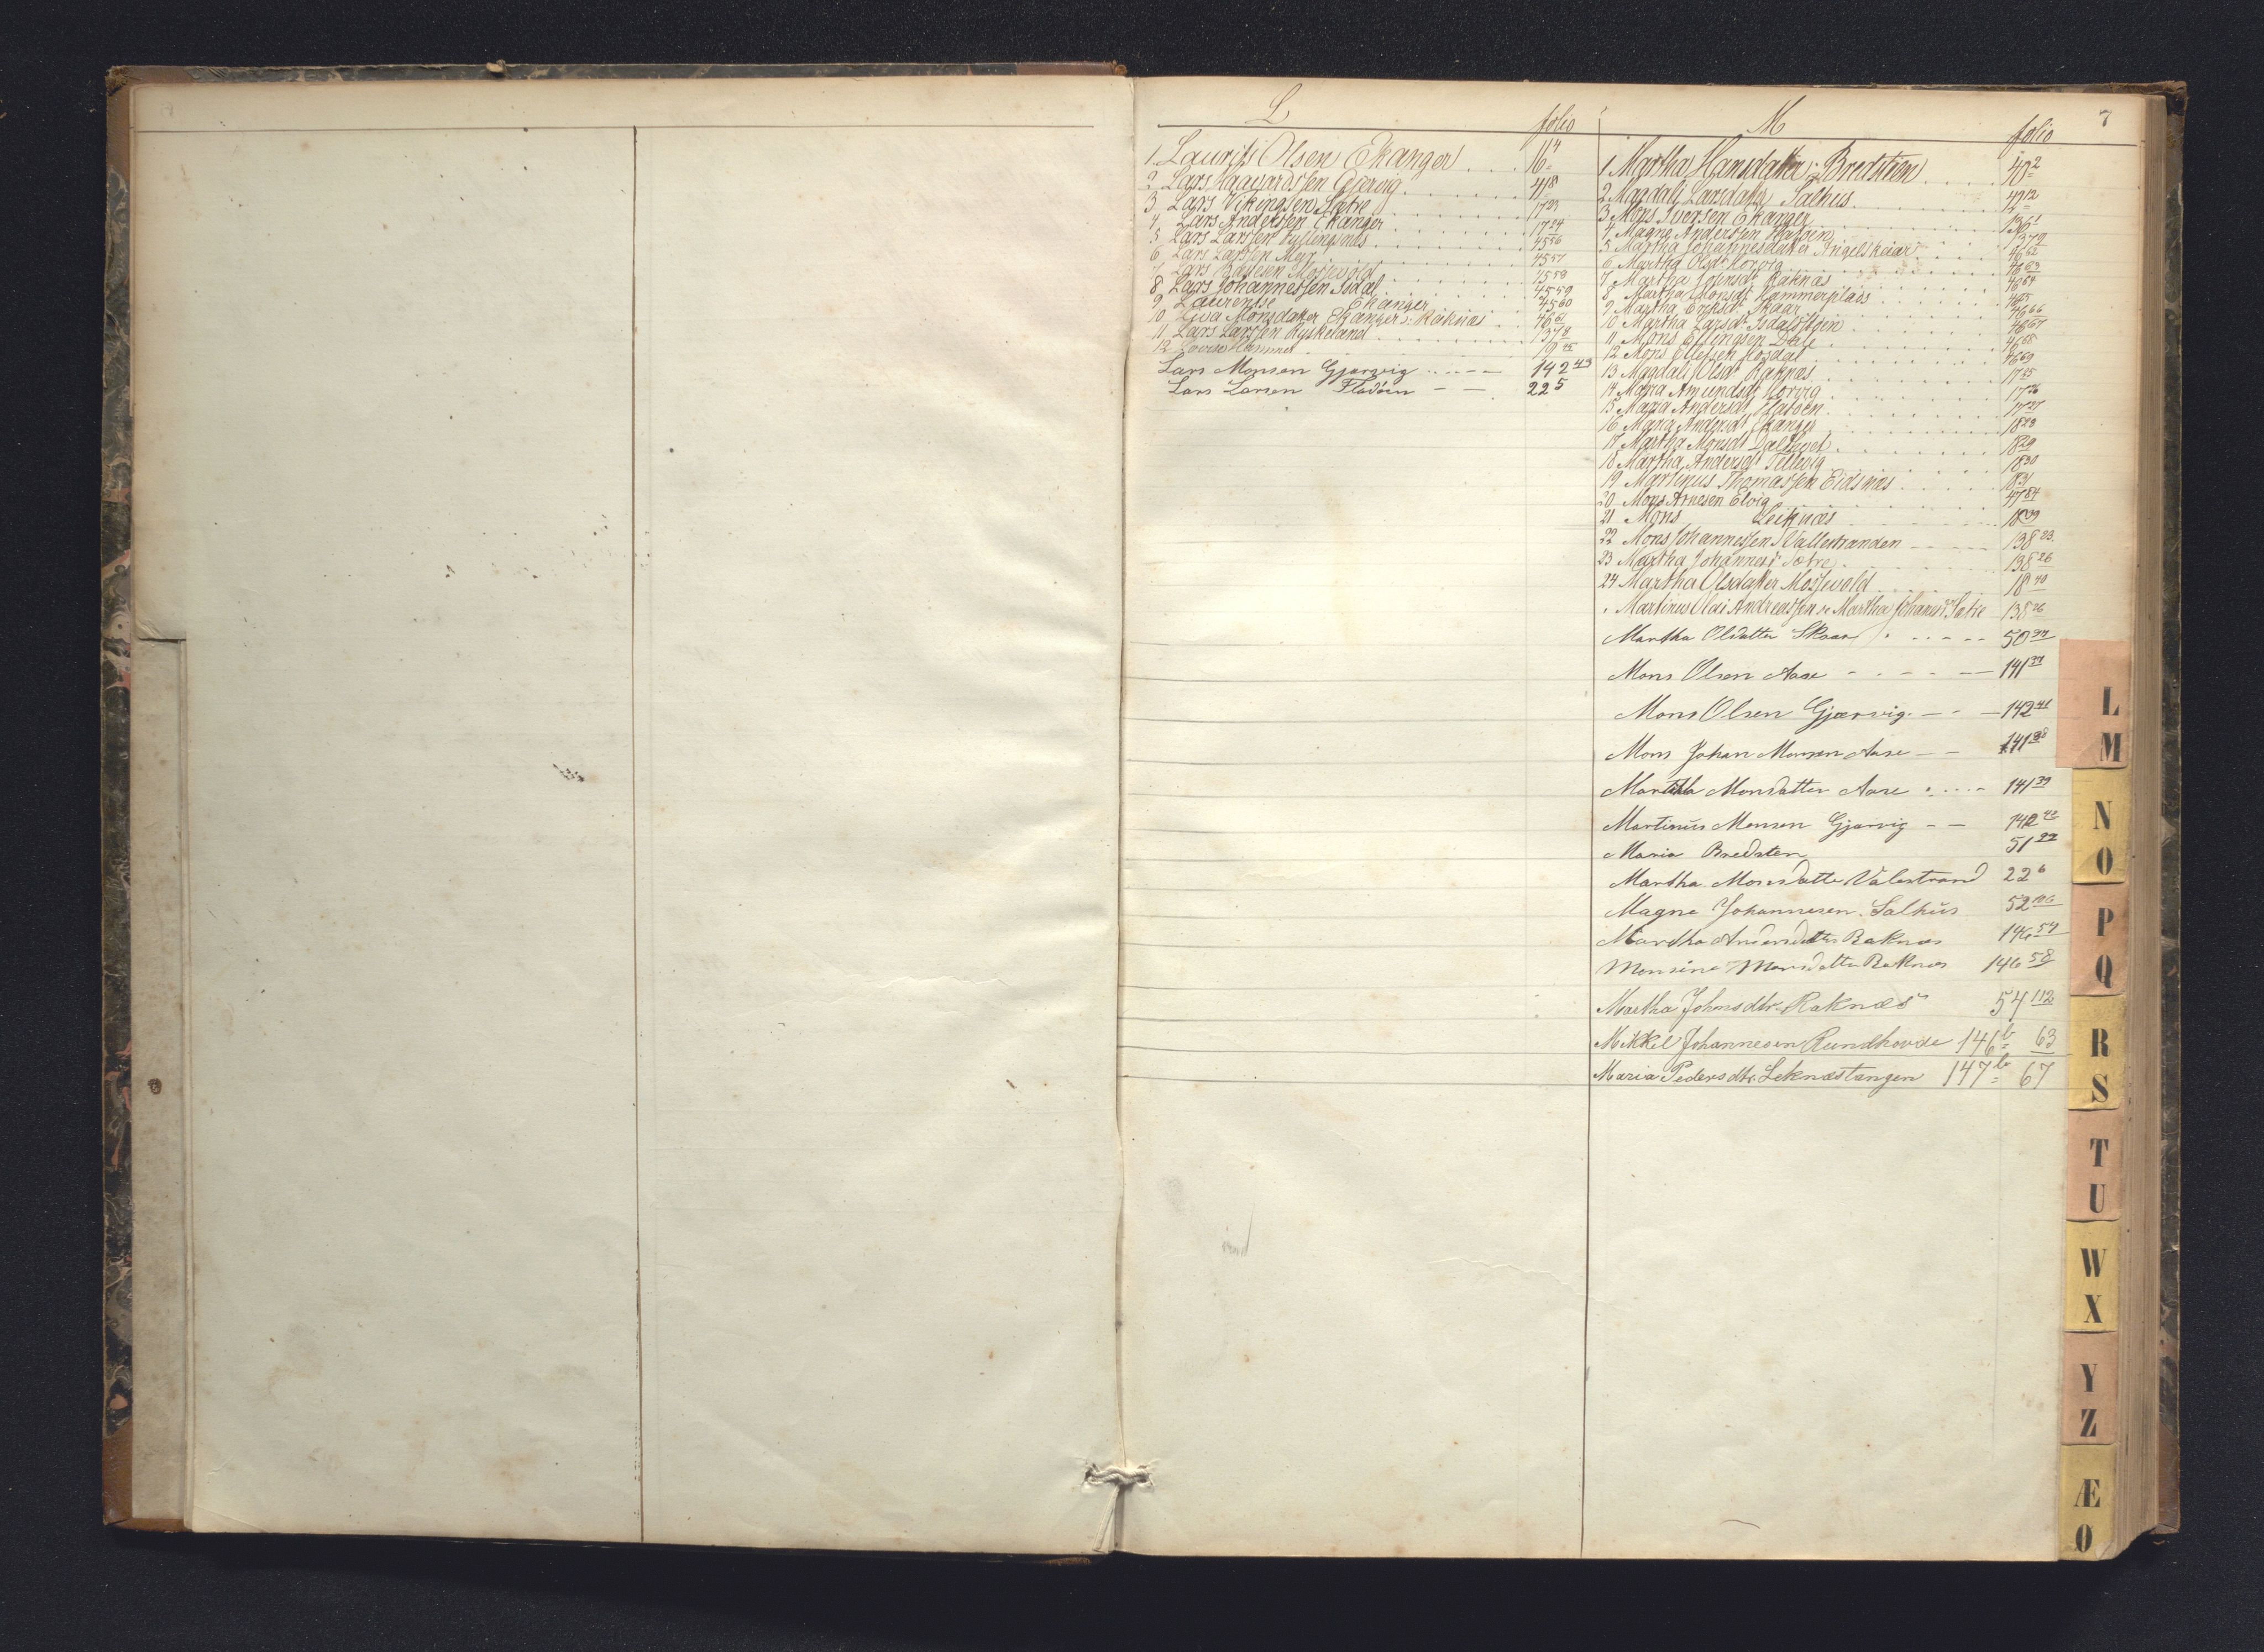 7
L folio
1. Laurits Olsen Ekanger 16 4
2 Lars Haavardssen Gjervig 41 8
3 Lars Vikingssen Sætre 17 23
4 Lars Anderssen Ekanger 17 24
5 Lars Larssen Fyllingsnæs 45 56
6 Lars Larssen Myr 45 57
7 Lars Mossevold 45 58
8 Lars Johannessen Isdal 45 59
9 Laurentse Ekanger 45 60
10 Lisa Monsdatter Ekanger Raknæs 46 61
11 Lars Larssen Ryskeland 137 8
12 Hammer 19 45
Lars Monsen Gjærvig 142 43
Lars Larsen Fladøen 22 5
M folio
1 Martha Hansdatter Bredsteen 40 2
2 Magdali Larsdatter Salhus 42 12
3 Mons Iversen Ekanger 136 1
4 Magne Anderssen Hatøen 137 9
5 Martha Johannesdatter Ingelskaar 46 62
6 Martha Olsdt Horvig 46 63
7 Martha Johnsdt Raknæs 46 64
8 Martha Monsdt Hammerplads 46 65
9 Martha Eriksdt Skaar 46 66
10 Martha Larsdt Isdalsstøen 46 67
11 Mons Ellingsen Dale 46 68
12 Mons Ellefsen Mosdal 46 69
13 Magdali Olsdt Raknæs 17 25
14 Maria Amundsdt Horvig 17 26
15 Maria Andersdt Hatøen 17 27
16 Maria Andersdt Ekanger 18 28
17 Martha Monsdt 18 29
18 Martha Andersdt Tellevig 18 30
19 Martinus Thomassen Eidsnæs 18 31
20 Mons Arnesen Elvig 47 84
21 Mons Leiknæs 18 39
22 Mons Johannessen Vallestranden 138 23.
23 Martha Johannesdt Sætre 138 26
24 Martha Olsdatter Mossevold 18 40
Martinus Olai Andreassen s. Martha Johannesdt Sætre 138 26
Martha Olsdatter Skaar 50 94
Mons Olsen Aase 141 37
Mons Olsen Gjærvig 142 41
Mons Johan Monsen Aase 141 38
Martha Monsdatter Aase 141 39
Martinus Monsen Gjærvig 142 42
Maria Bredsten 51 99
Martha Monsdatter Valestrand 22 6
Magne Johannesen Salhus 52 106
Martha Andersdatter Raknæs 146 57
Monsine Monsdatter Raknæs 146 58
Martha Johnsdtr. Raknæs 54 112
Mikkel Johannesen Rundhovde 146 b 63
Maria Pedersdtr. Leknæstangen 147 b 67
L
M
N
O
P
Q
R
S
T
U
W
X
Y
Z
Æ
Ø